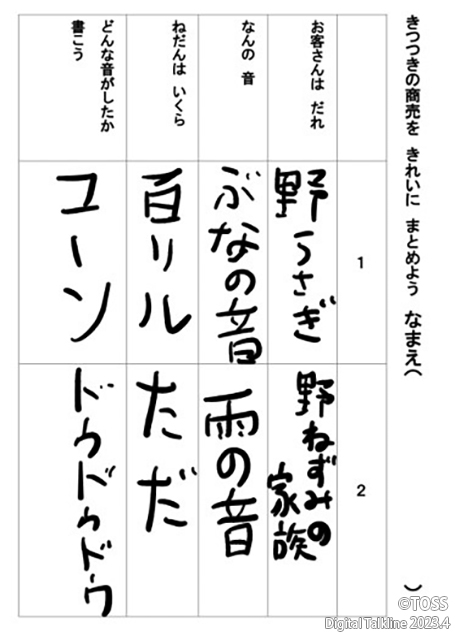 きつつきの商売を きれいに まとめよう なまえ( )
お客さんは だれ
なんの 音
ねだんは いくら
どんな音がしたか
書こう
1
野うさぎ
ぶなの音
百リル
コーン
2
野ねずみの
家族
雨の音
ただ
ドゥドゥドゥ
©TOSS
Digital Talkline 2023.4